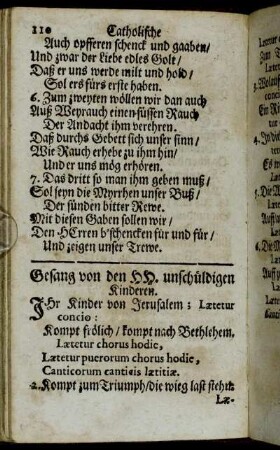 110 Catholische
Auch opfferen schenck und gaaben/
Und zwar der Liebe edles Golt/
Daß er uns werde milt und hold/
Sol ers fürs erste haben.
6. Zum zweyten wöllen wir dan auch
Auß Weyrauch einen süssen Rauch
Der Andacht ihm verehren.
Daß durchs Gebett sich unser sinn/
Wie Rauch erhebe zu ihm hin/
Und er uns mög erhören.
7. Das dritt so man ihm geben muß/
Sol seyn die Myrrhen unser Buß/
Der sünden bitter Rewe.
Mit diesen Gaben sollen wir/
Den HErren b'schencken für und für/
Und zeigen unser Trewe.
Gesang von den HH. unschüldigen
Kinderen.
IHr Kinder von Jerusalem; Lætetur
concio:
Kompt frölich/ kompt nach Bethlehem.
Lætetur chorus hodie,
Lætetur puerorum chorus hodie,
Canticorum canticis lætitiæ.
2. Kompt zum Triumph/die wieg last stehn
Læ-